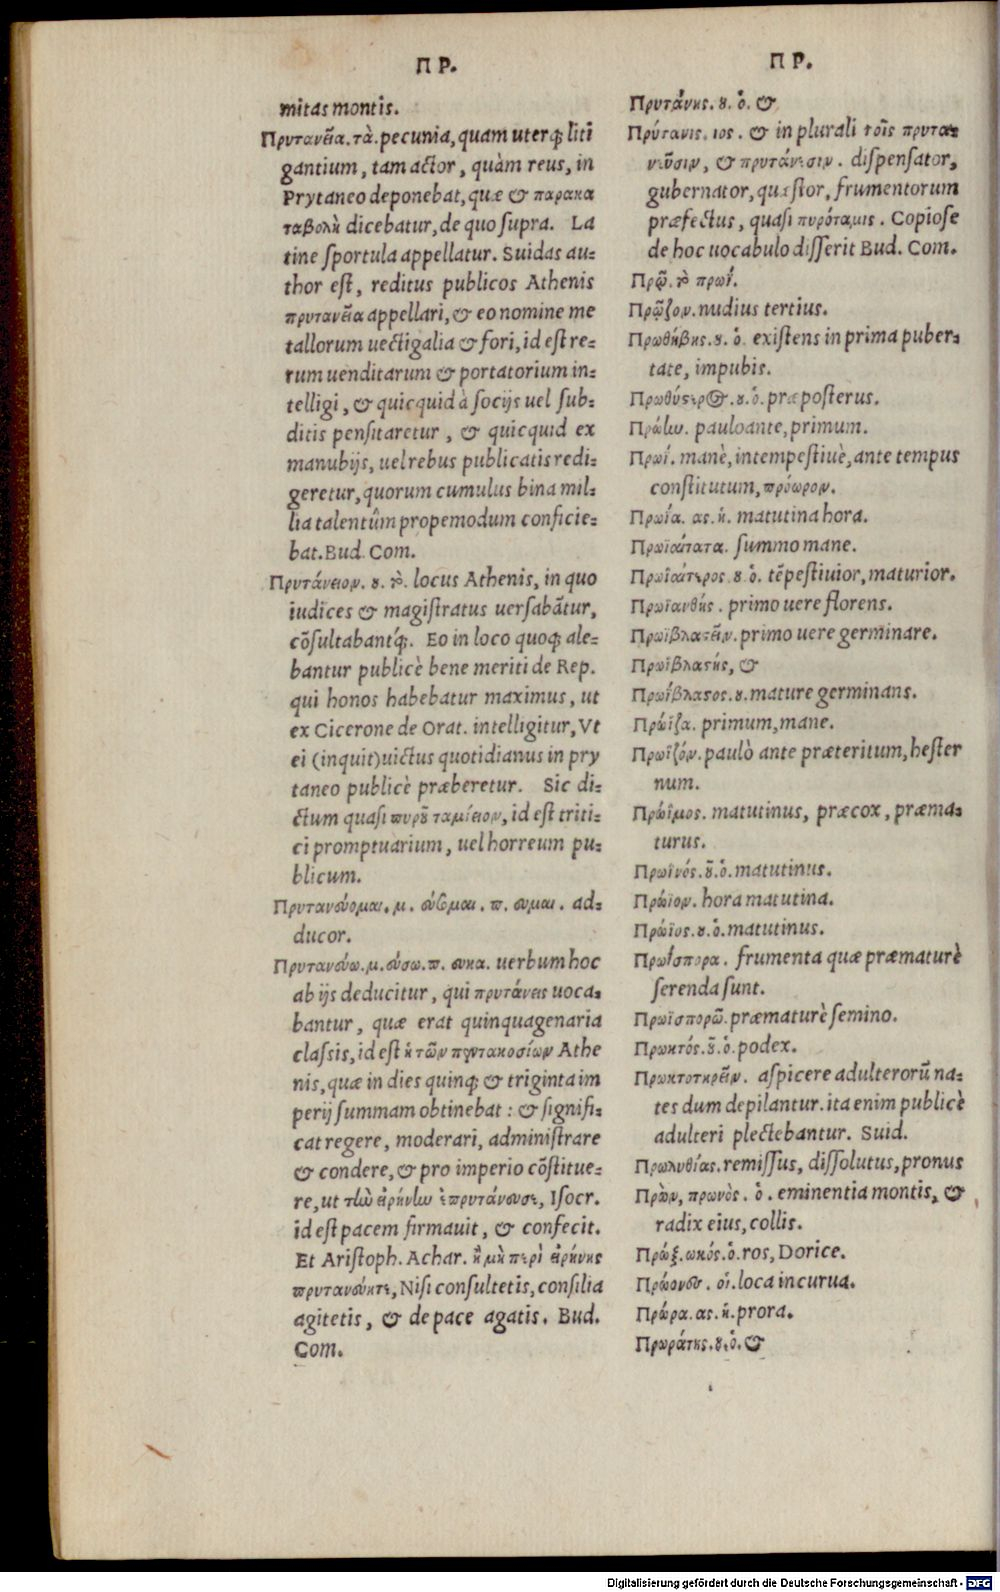 ΠΡ.
mitas montis.
Πρυτανεῖα. τὰ. pecunia, quam uterq; liti
gantium, tam actor, quàm reus, in
Prytaneo deponebat, quæ & παρακα
ταβολὴ dicebatur, de quo supra. La
tine sportula appellatur. Suidas au-
thor est, reditus publicos Athenis
πρυτανεῖα appellari, & eo nomine me
tallorum uectigalia & fori, id est re-
rum uenditarum & portatorium in-
telligi, & quicquid à socijs uel sub-
ditis pensitaretur, & quicquid ex
manubijs, uel rebus publicatis redi-
geretur, quorum cumulus bina mil-
lia talentûm propemodum conficie-
bat. Bud. Com.
Πρυτάνειον. ȣ. τὸ. locus Athenis, in quo
iudices & magistratus uersabātur,
cōsultabantq́;. Eo in loco quoq; ale-
bantur publicè bene meriti de Rep.
qui honos habebatur maximus, ut
ex Cicerone de Orat. intelligitur, Vt
ei (inquit) uictus quotidianus in pry
taneo publicè præberetur. Sic di-
ctum quasi πυρȣ͂ ταμίειον, id est triti-
ci promptuarium, uel horreum pu-
blicum.
Πρυτανεύομαι. μ. εύσομαι. π. ευμαι. ad-
ducor.
Πρυτανεύω. μ. εύσω. π. ευκα. uerbum hoc
ab ijs deducitur, qui πρυτάνεις uoca-
bantur, quæ erat quinquagenaria
classis, id est ἡ τῶν πεντακοσίων Athe
nis, quæ in dies quinq; & triginta im
perij summam obtinebat: & signifi-
cat regere, moderari, administrare
& condere, & pro imperio cōstitue-
re, ut τὴν εἰρήνην ἐπρυτάνευσε, Isocr.
id est pacem firmauit, & confecit.
Et Aristoph. Achar. ἢ μὴ περὶ εἰρήνης
πρυτανεύητε, Nisi consultetis, consilia
agitetis, & de pace agatis. Bud.
Com.
ΠΡ.
Πρυτάνης. ȣ. ὁ. &
Πρύτανις. ιος. & in plurali τοῖς πρυτα-
νεῦσιν, & πρυτάνεσιν. dispensator,
gubernator, quæstor, frumentorum
præfectus, quasi πυρόταμις. Copiose
de hoc uocabulo disserit Bud. Com.
Πρῷ. τὸ πρωΐ.
Πρῷζον. nudius tertius.
Πρωθήβης. ȣ. ὁ. existens in prima puber-
tate, impubis.
Πρωθύστερος. ȣ. ὁ. præposterus.
Πρώην. pauloante, primum.
Πρωΐ. manè, intempestiuè, ante tempus
constitutum, πρόωρον.
Πρωΐα. ας. ἡ. matutina hora.
Πρωϊαίτατα. summo mane.
Πρωϊαίτερος. ȣ. ὁ. tēpestiuior, maturior.
Πρωϊανθής. primo uere florens.
Πρωϊβλαστεῖν. primo uere germinare.
Πρωϊβλαστής, &
Πρωΐβλαστος. ȣ. mature germinans.
Πρώϊζα. primum, mane.
Πρωϊζόν. paulò ante præteritum, hester
num.
Πρώϊμος. matutinus, præcox, præma-
turus.
Πρωϊνός. ȣ͂. ὁ. matutinus.
Πρώϊον. hora matutina.
Πρώϊος. ȣ. ὁ. matutinus.
Πρωΐσπορα. frumenta quæ præmaturè
serenda sunt.
Πρωϊσπορῶ. præmaturè semino.
Πρωκτός. ȣ͂. ὁ. podex.
Πρωκτοτηρεῖν. aspicere adulterorū na-
tes dum depilantur. ita enim publicè
adulteri plectebantur. Suid.
Πρωλυθίας. remissus, dissolutus, pronus
Πρὼν, πρωνὸς. ὁ. eminentia montis, &
radix eius, collis.
Πρώξ. ωκός. ὁ. ros, Dorice.
Πρώονες. οἱ. loca incurua.
Πρώρα. ας. ἡ. prora.
Πρωράτης. ȣ. ὁ. &
Digitalisierung gefördert durch die Deutsche Forschungsgemeinschaft - DFG